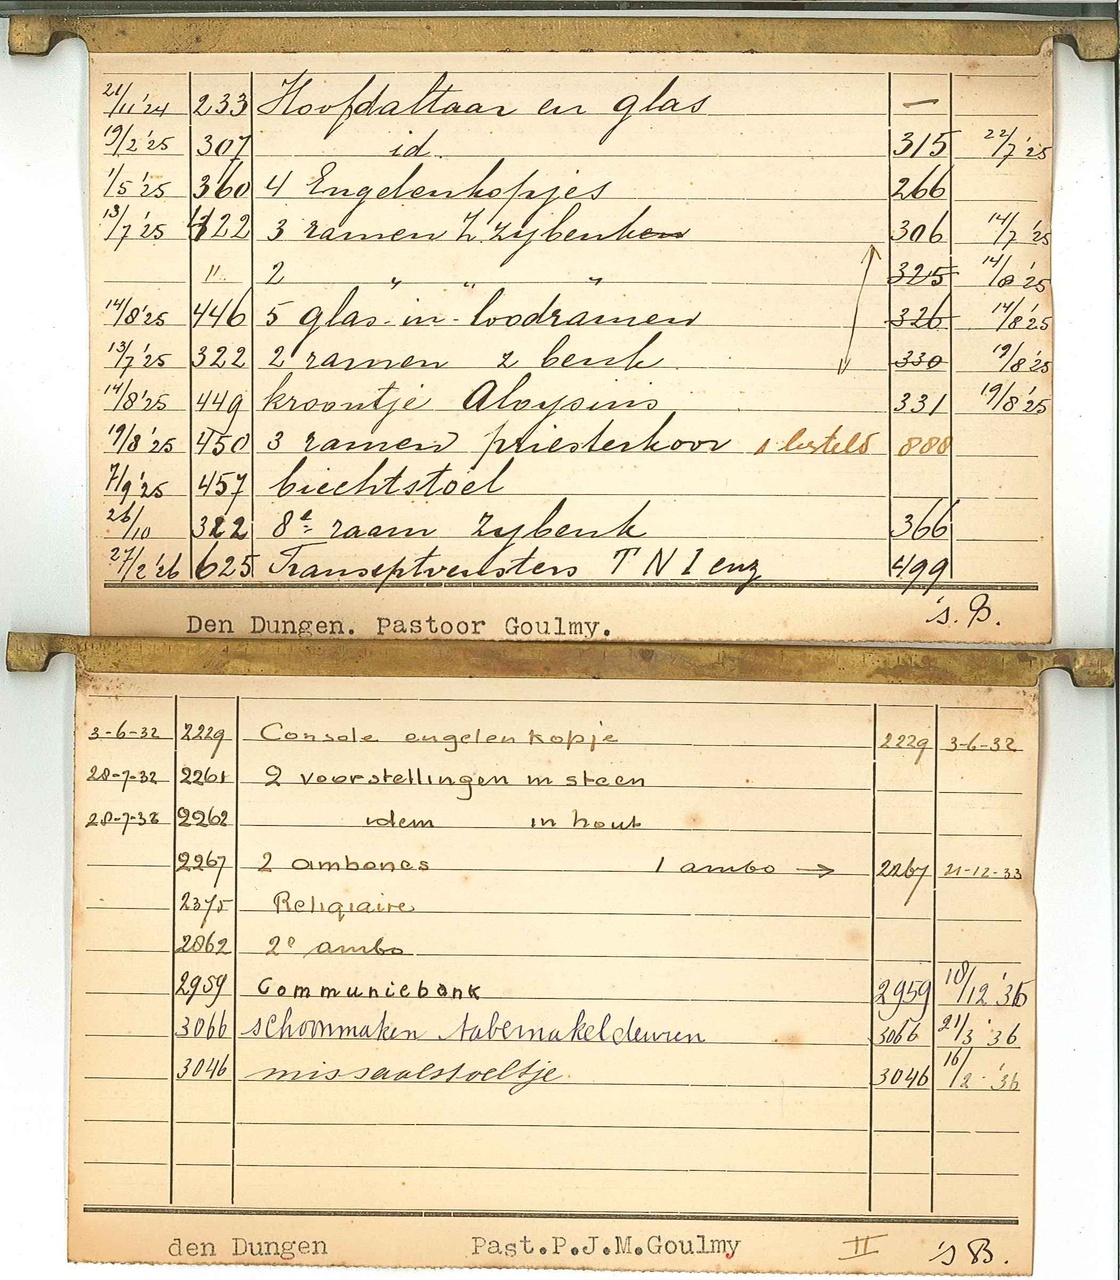 21/11 '24 233 Hoofdaltaar en glas —
19/2 '25 307 id. 315 22/7 '25
1/5 '25 360 4 Engelenkopjes 266
13/7 '25 322 3 ramen Z. zybenken 306 14/7 '25
" 2 " " " 325 14/8 '25
14/8 '25 446 5 glas-in-loodramen 326 14/8 '25
13/7 '25 322 2 ramen z benk 330 19/8 '25
14/8 '25 449 kroontje Aloysius 331 19/8 '25
19/8 '25 450 3 ramen priesterkoor besteld 888
7/9 '25 457 biechtstoel
26/10 322 8e raam Zybenk 366
27/2 '26 625 Transeptvensters T N I enz 499
's. B.
Den Dungen. Pastoor Goulmy.
3-6-32 2229 Console engelenkopje 2229 3-6-32
28-7-32 2261 2 voorstellingen in steen
28-7-32 2262 idem in hout
2267 2 ambones 1 ambo → 2267 21-12-33
2375 Reliqiaire
2862 2e ambo
2959 Communiebank 2959 18/12 '35
3066 schoonmaken tabernakeldeuren 3066 21/3 '36
3046 missaalstoeltje 3046 16/2 - '36
den Dungen Past.P.J.M.Goulmy II 's B.